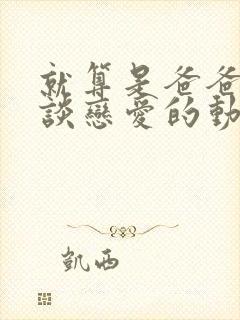 就算是爸爸
談戀愛的動
凱西